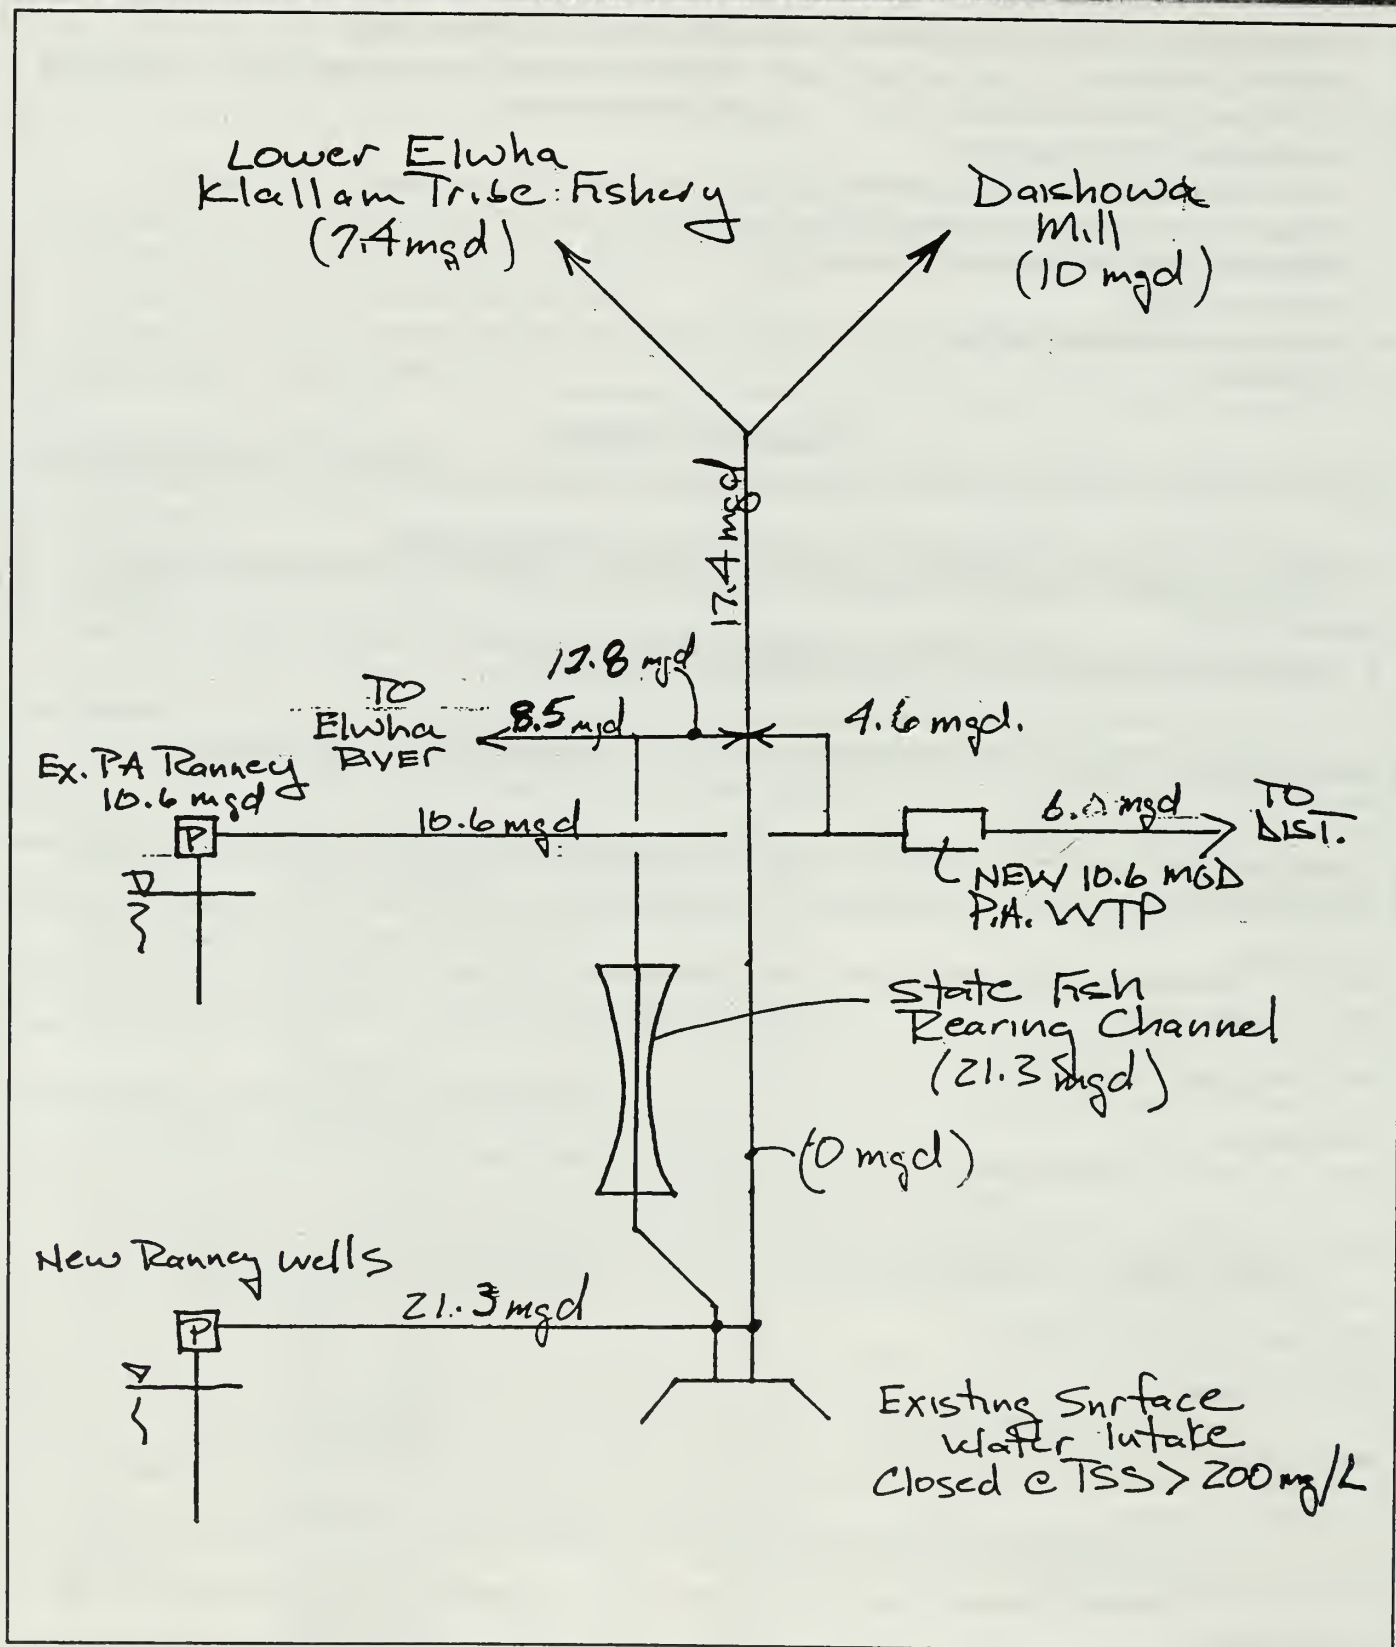 Lower Elwha
Klallam Tribe Fishery
(7.4 mgd)
Daishowa
Mill
(10 mgd)
17.4 mgd
12.8 mgd
TO
Elwha
RIVER
8.5 mgd
4.6 mgd.
Ex. PA Ranney
10.6 mgd
P
10.6 mgd
6.0 mgd
TO
DIST.
NEW 10.6 MGD
P.A. WTP
State Fish
Rearing Channel
(21.3 mgd)
(0 mgd)
New Ranney Wells
P
21.3 mgd
Existing Surface
Water Intake
Closed @ TSS > 200 mg/L